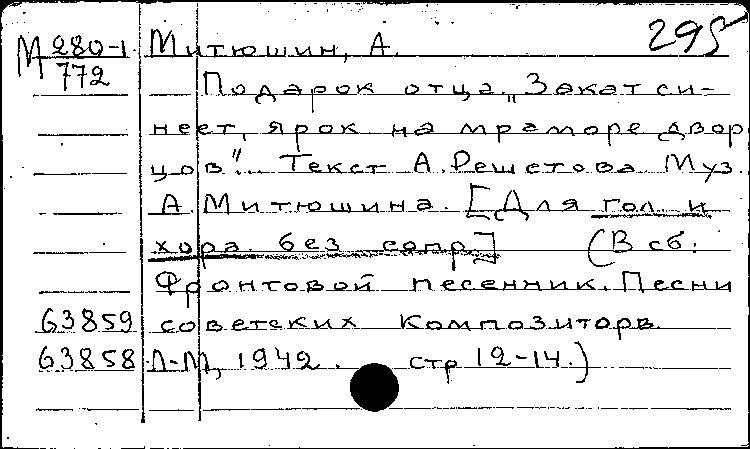 295
М 280-1 Митюшин, А.
772 Подарок отца. „Закат си-
неет, ярок на мраморе двор
цов"... Текст А. Решетова Муз.
А. Митюшина. [Для гол. и
хора без сопр] (В сб:
Фронтовой песенник. Песни
63859 советских композиторв.
63858 Л-М, 1942. стр 12-14.)